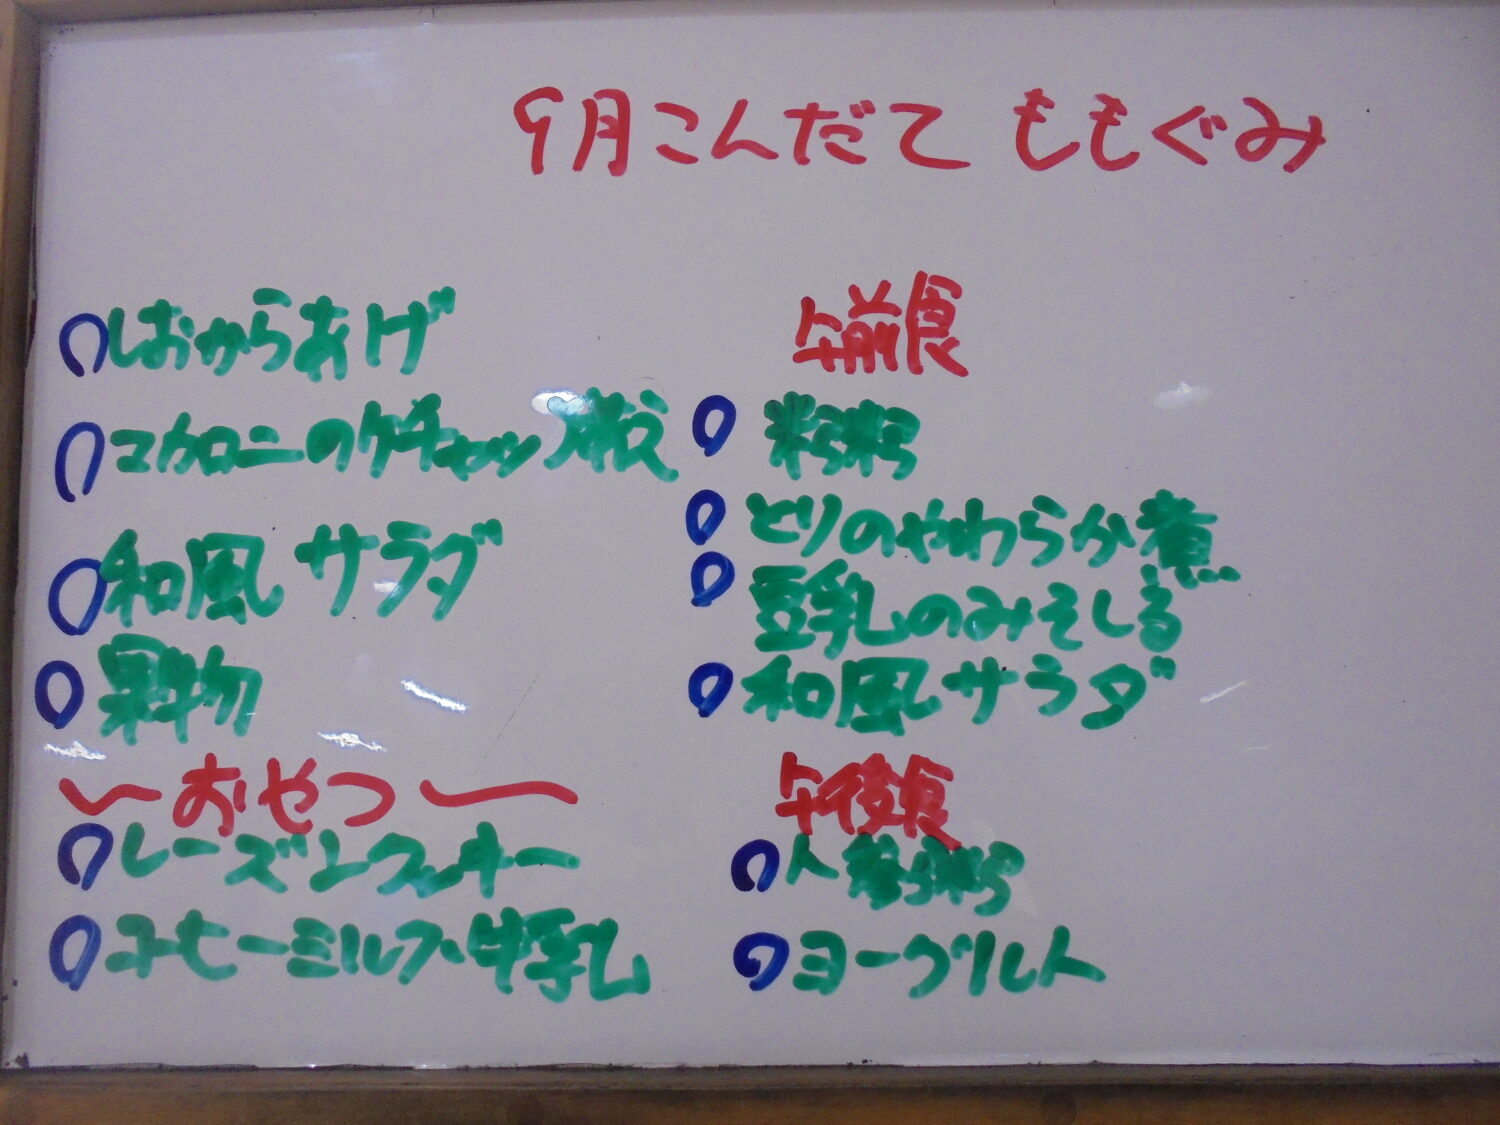 9月こんだて ももぐみ
しおからあげ
マカロニのケチャップ煮
和風サラダ
果物
おやつ
レーズンクッキー
コーヒーミルク・牛乳
午前食
とりのやわらか煮
豆乳のみそしる
和風サラダ
午後食
人参
ヨーグルト